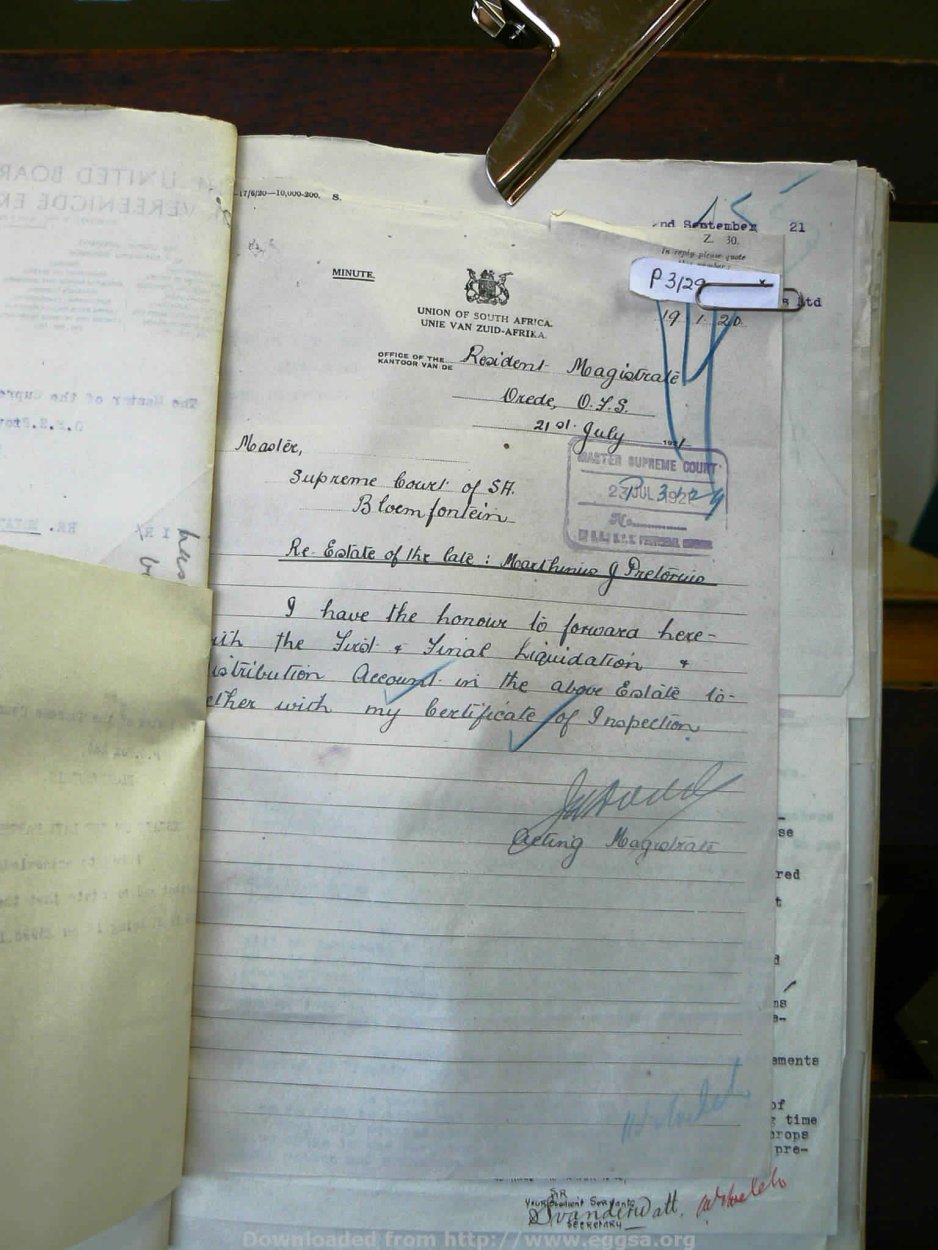 17/6/20—10,000-200. S.
nd September 21
Z. 30.
In reply please quote
this number:
P 3/29
s Ltd
19. 1. 20
MINUTE.
UNION OF SOUTH AFRICA.
UNIE VAN ZUID-AFRIKA.
OFFICE OF THE
KANTOOR VAN DE
Resident Magistrate
Vrede, O.F.S.
21st July 1921
Master,
Supreme Court of SA.
Bloemfontein
MASTER SUPREME COURT
23 JUL 1921
P 3129
No.
Re Estate of the late : Marthinus J Pretorius
I have the honour to forward here-
ith the First & Final Liquidation &
istribution Account in the above Estate to-
ether with my Certificate of Inspection.
Acting Magistrate
UNITED BOAR
VEREENIGDE E
The Master of the Supre
O.F.S.
se
red
t
d
ns
e-
ements
of
g time
crops
pre-
SIR
Your Obedient Servants
Dvanderwatt.
SECRETARY
Downloaded from http://www.eggsa.org